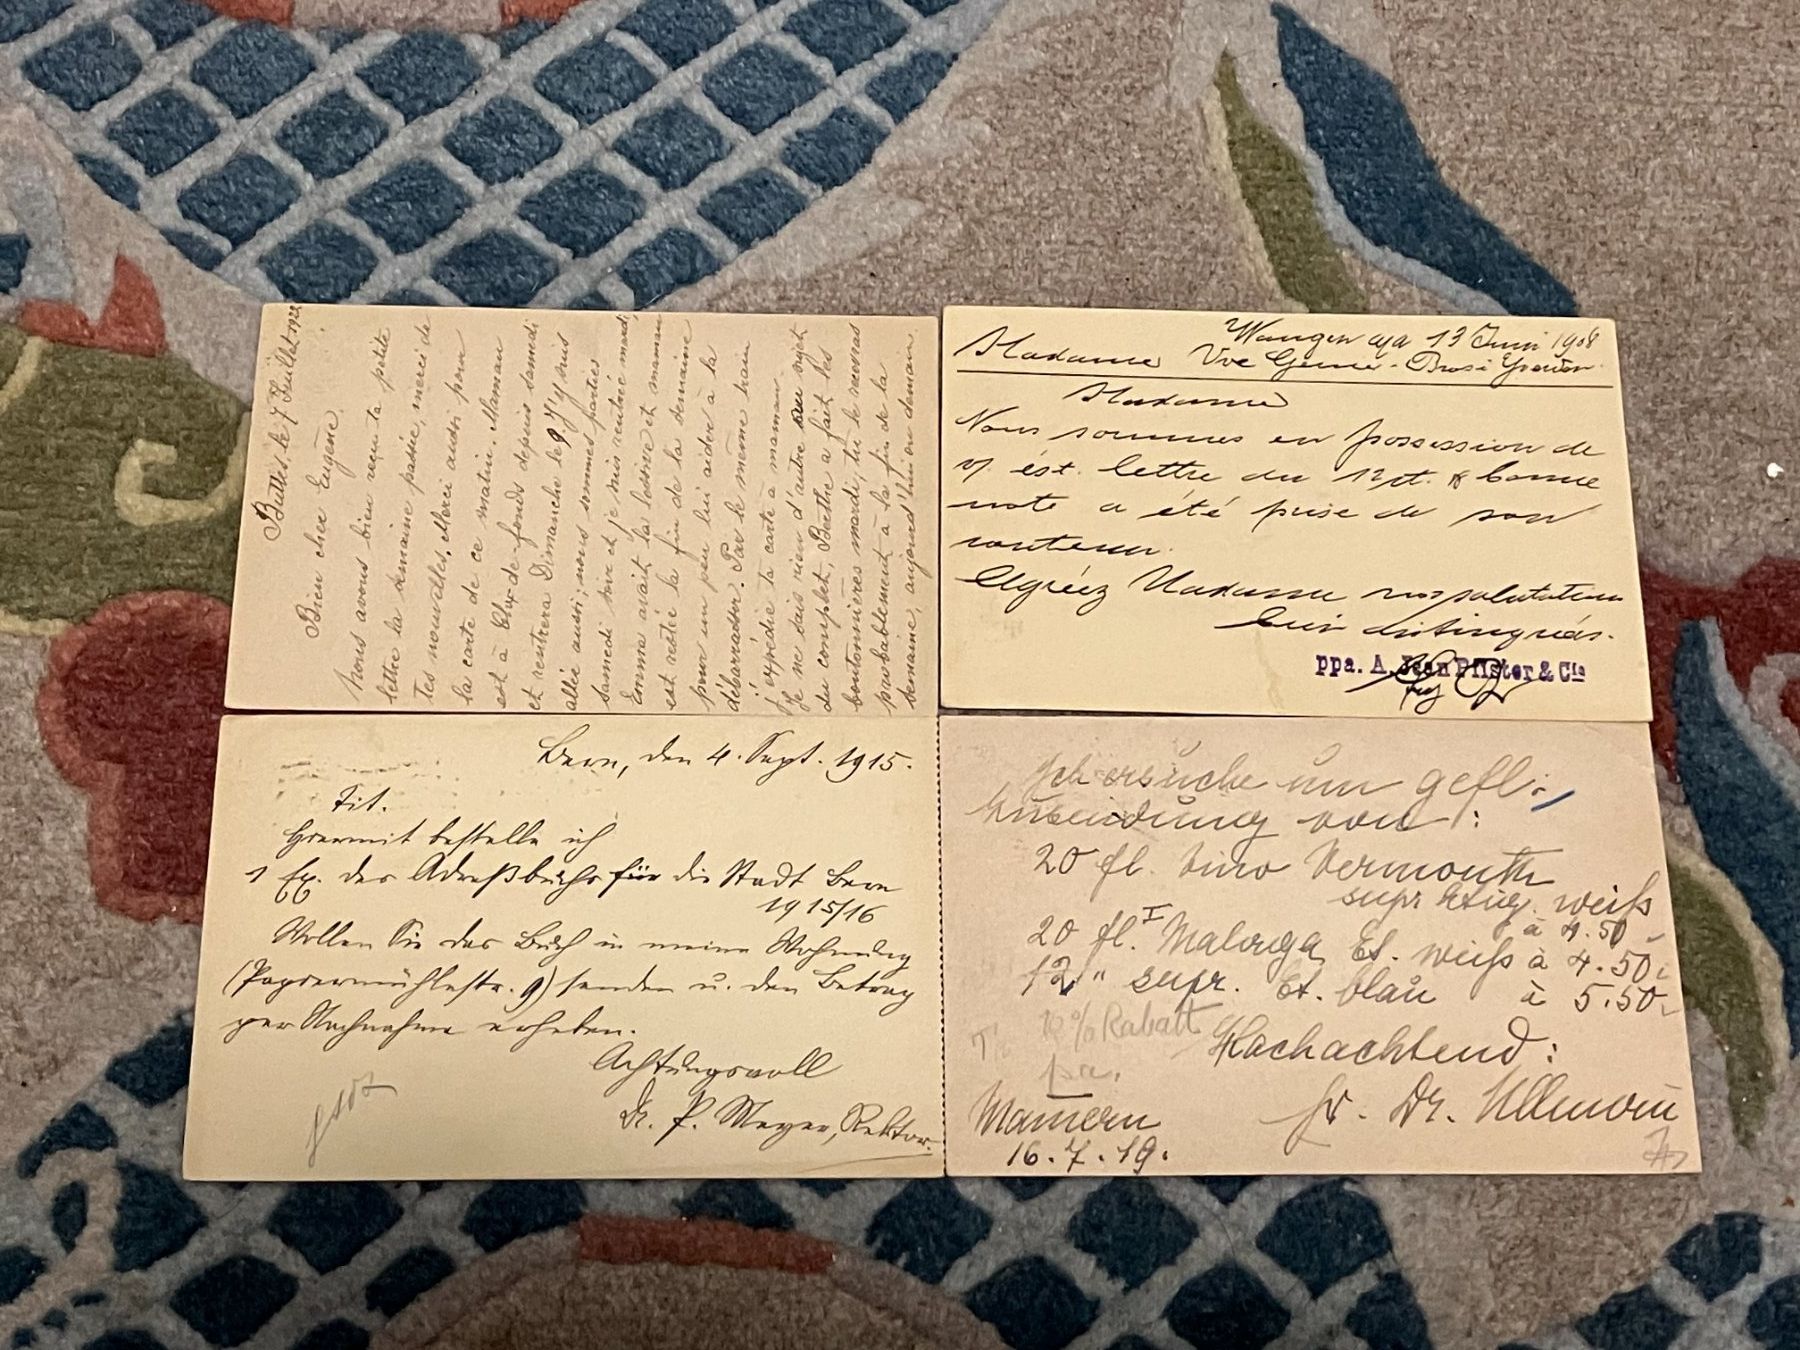 Buttes, le 7 Juillet 1922
Bien cher Eugène.
Nous avons bien reçu ta petite
lettre la semaine passée, merci de
tes nouvelles. Merci aussi pour
la carte de ce matin. Maman
est à Chx-de-fonds depuis samedi
et rentrera Dimanche le 9. J'y suis
allée aussi; nous sommes parties
samedi soir et je suis rentrée mardi,
Emma avait la lessive et maman
est restée la fin de la semaine
pour un peu lui aider à la
débarrasser. Par le même train
j'expédie ta carte à maman.
Je ne sais rien d'autre au sujet
du complet, Berthe a fait les
boutonnières mardi, tu le recevras
probablement à la fin de la
semaine, aujourd'hui ou demain.
Wangen a/a 13 Juni 1908
Madame Vve Yverdon
Madame
Nous sommes en possession de
v/ est. lettre du 12 ct. & bonne
note a été prise de son
contenu.
Agréez Madame nos salutations
bien distinguées.
ppa. A. Jean Pfister & Cie
Bern, den 4. Sept. 1915.
Tit.
Hiermit bestelle ich
1 Ex. des Adreßbuchs für die Stadt Bern
1915/16
Wollen Sie das Buch in meine Wohnung
(Papiermühlestr. 9) senden u. den Betrag
per Nachnahme erheben.
Achtungsvoll
Dr. P. Meyer, Rektor.
Ich ersuche um gefl.
Zusendung von:
20 fl. Vino Vermouth
supr weiß
à 4.50
20 fl. I Malaga Et. weiß à 4.50
12 " supr. Et. blau à 5.50
10% Rabatt
Hochachtend:
Mamern
Fr. Dr. Ullmann
16.7.19.